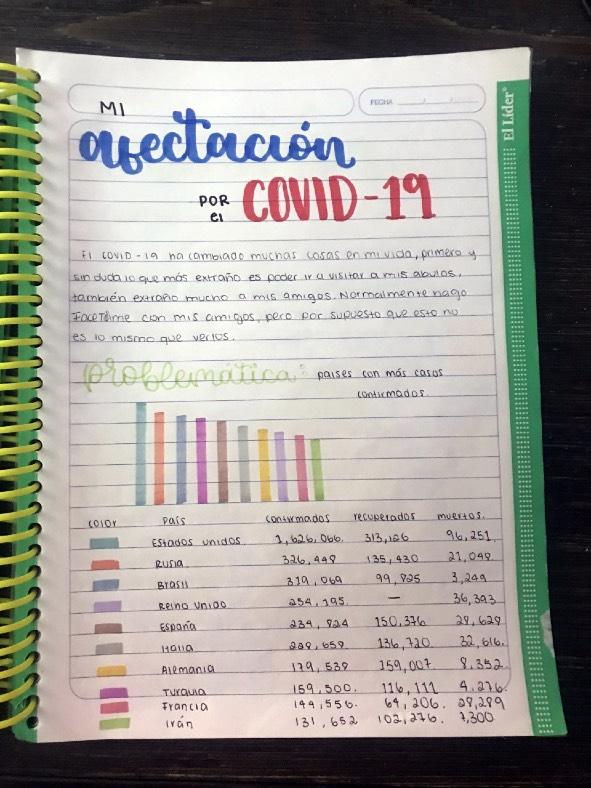 FECHA
El Líder
MI
afectación
POR
el
COVID-19
El COVID-19 ha cambiado muchas cosas en mi vida, primero y
sin duda lo que más extraño es poder ir a visitar a mis abulos,
también extraño mucho a mis amigos. Normalmente hago
FaceTime con mis amigos, pero por supuesto que esto no
es lo mismo que verlos.
problemática: paises con más casos
confirmados.
color país confirmados recuperados muertos.
Estados unidos 1,626,066. 313,126 96,251
Rusia 326,448 135,430
Brasil 319,069 99,825 3,249
Reino unido 254,195 — 36,393
España 150,376 28,628
Italia 136,720 32,616.
Alemania 179,539 159,007 8,352
Turquia 159,500. 116,111 4,276.
Francia 144,556. 64,206. 28,289
Irán 131,652 102,276. 7,300